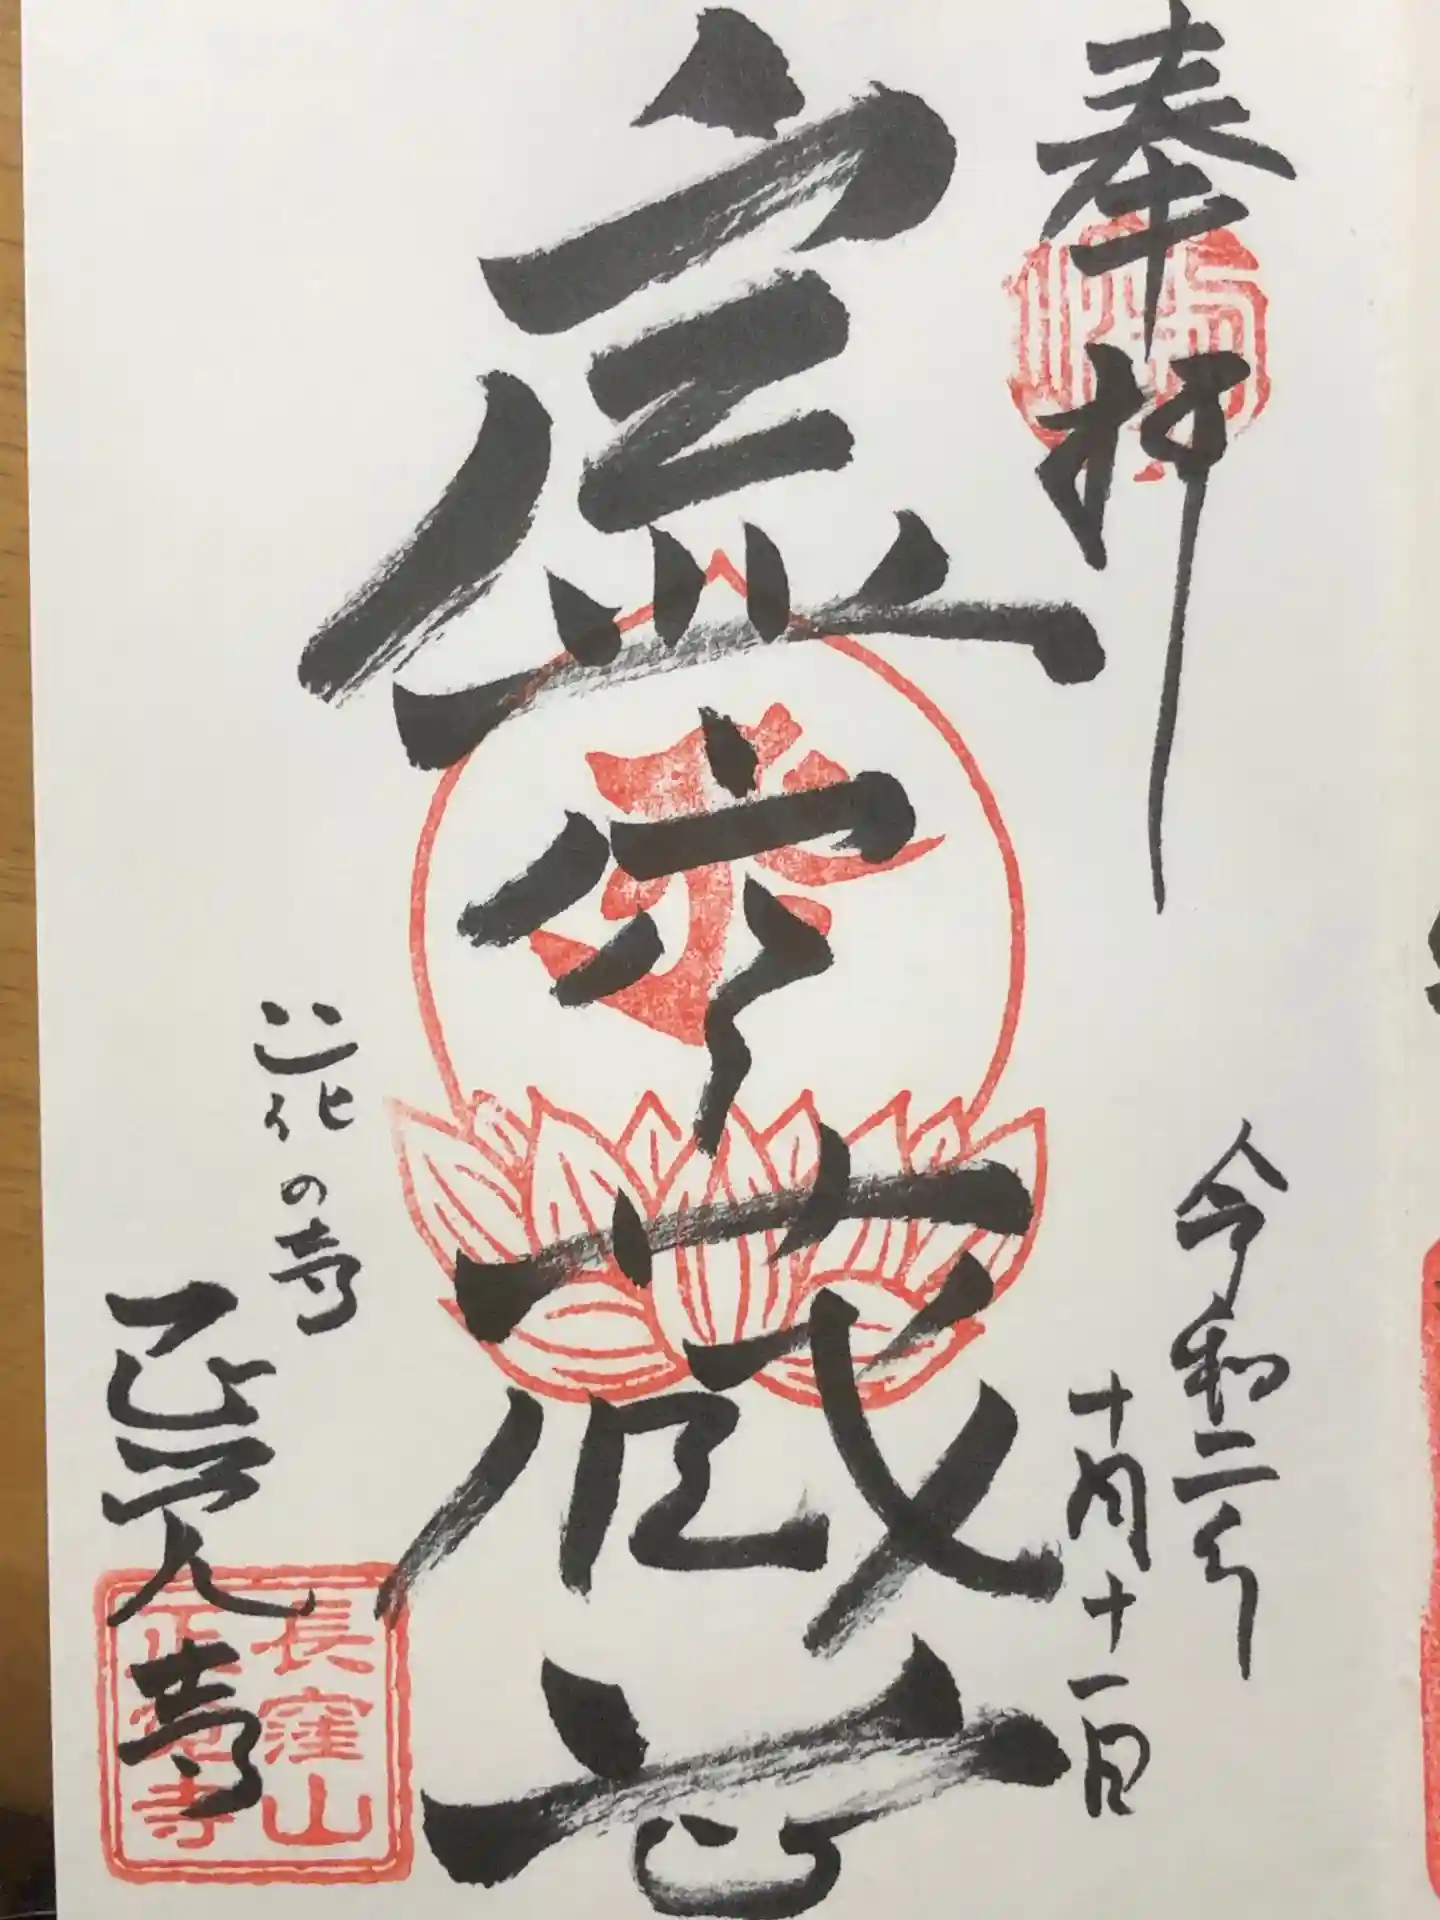 奉拝
令和二年
十月十一日
虚空蔵
花の寺
正覚寺
長窪山
正覚寺